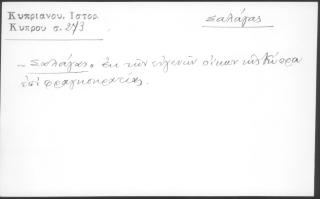 Κυπριανου, Ιστορ.
Κυπρου σ. 273
Σαλάχας
– Σαλάχας. ἐκ τῶν εὐγενῶν οἴκων τῆς Κύπρου
ἐπὶ φραγκοκρατίας.